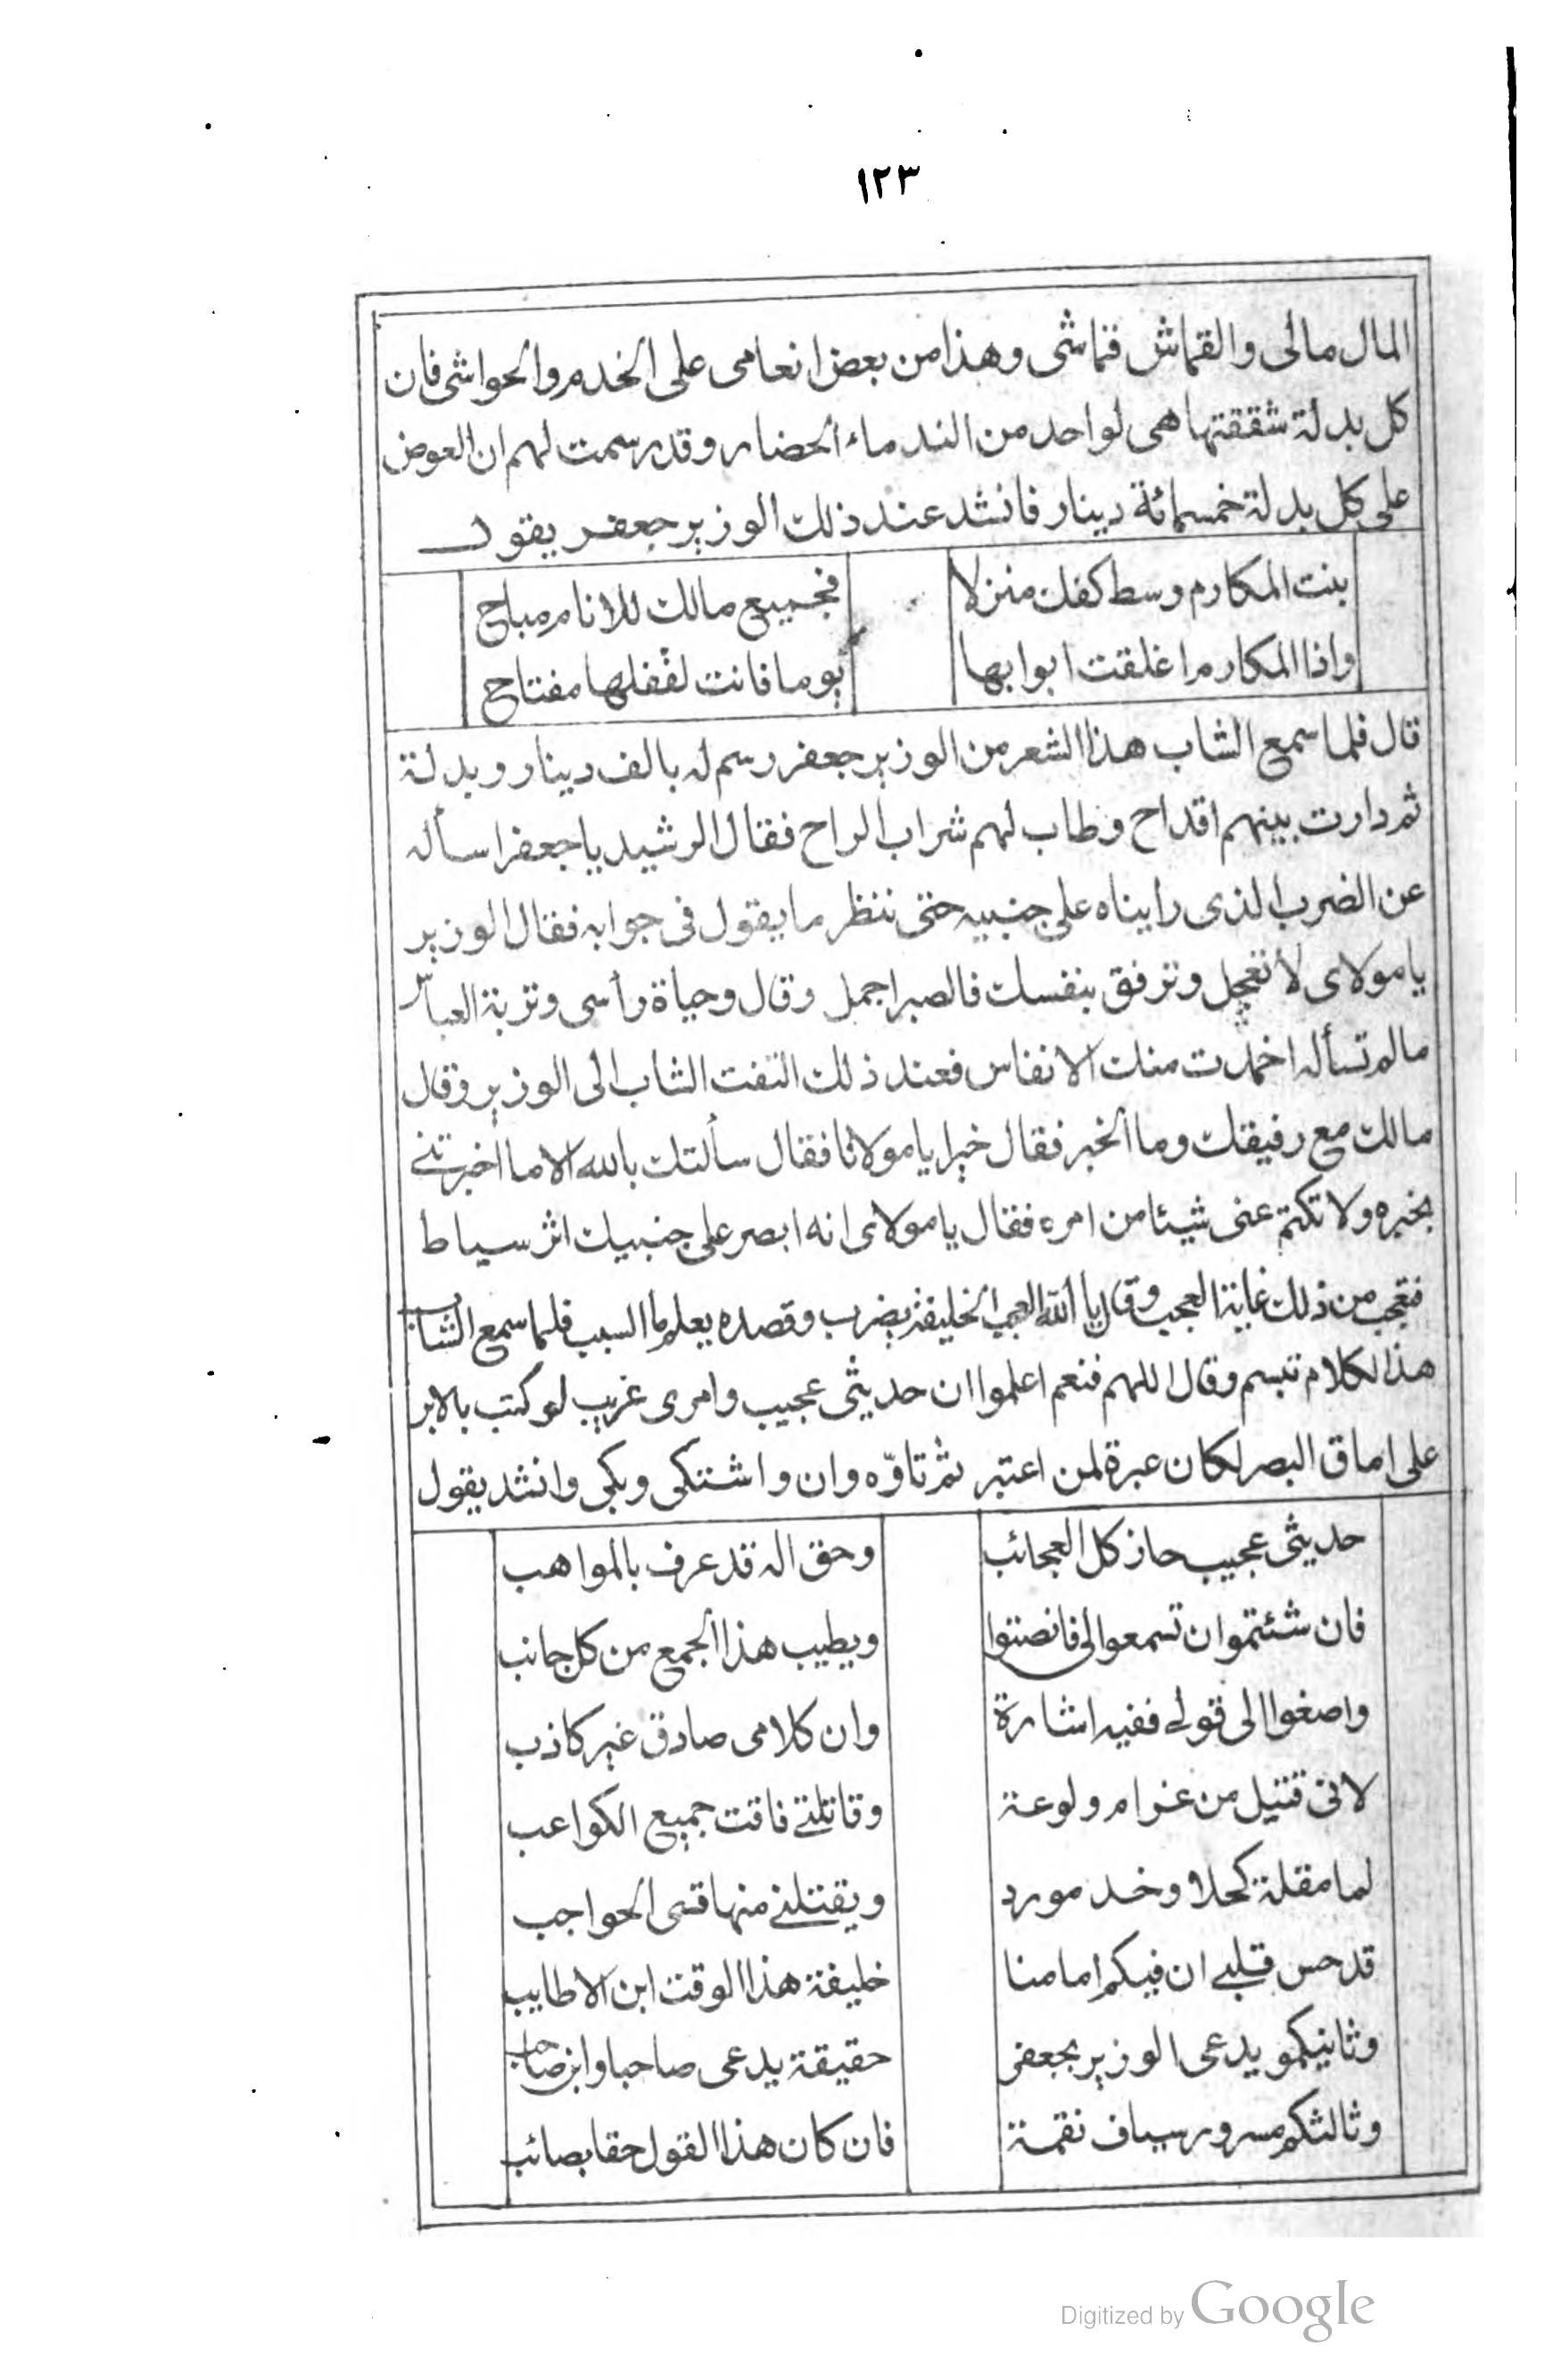 ١٢٣
المال مالى والقماش قماشى وهذا من بعض انعامى على الخدم والحواشى فان
كل بدلة شققتها هى لواحد من الندماء الحضار وقد رسمت لهم ان العوض
على كل بدلة خمسمائة دينار فانشد عند ذلك الوزير جعفر يقول
بنت المكارم وسط كفك منزلا فجميع مالك للانام مباح
واذا المكارم اغلقت ابوابها يوما فانت لقفلها مفتاح
قال فلما سمع الشاب هذا الشعر من الوزير جعفر رسم له بالف دينار وبدلة
ثم دارت بينهم اقداح وطاب لهم شراب الراح فقال الرشيد يا جعفر اسأله
عن الضرب الذى رايناه على جنبيه حتى ننظر ما يقول فى جوابه فقال الوزير
يا مولاى لا تعجل وترفق بنفسك فالصبر اجمل وقال وحياة رأسى وتربة العباس
ما لم تسأله اخمدت منك الانفاس فعند ذلك التفت الشاب الى الوزير وقال
مالك مع رفيقك وما الخبر فقال خيرا يا مولانا فقال سألتك بالله الا ما اخبرتنى
بخبره ولا تكتم عنى شيئا من امره فقال يا مولاى انه ابصر على جنبيك اثر سياط
فتعجب من ذلك غاية العجب وقال يا الله العجب الخليفة يضرب وقصده يعلم ما السبب فلما سمع الشاب
هذا الكلام تبسم وقال اللهم فنعم اعلموا ان حديثى عجيب وامرى غريب لو كتب بالابر
على اماق البصر لكان عبرة لمن اعتبر ثم تاوّه وان واشتكى وبكى وانشد يقول
حديثى عجيب حاز كل العجائب وحق اله قد عرف بالمواهب
فان شئتموا ان تسمعوا لى فانصتوا ويطيب هذا الجمع من كل جانب
واصغوا الى قولى ففيه اشارة وان كلامى صادق غير كاذب
لانى قتيل من غرام ولوعة وقاتلتى فاقت جميع الكواعب
لها مقلة كحلا وخد مورد ويقتلنى منها قسى الحواجب
قد حس قلبى ان فيكم امامنا خليفة هذا الوقت ابن الاطايب
وثانيكمو يدعى الوزير بجعفر حقيقة يدعى صاحبا وابن صاحب
وثالثكم مسرور سياف نقمة فان كان هذا القول حقا بصائب
Digitized by Google